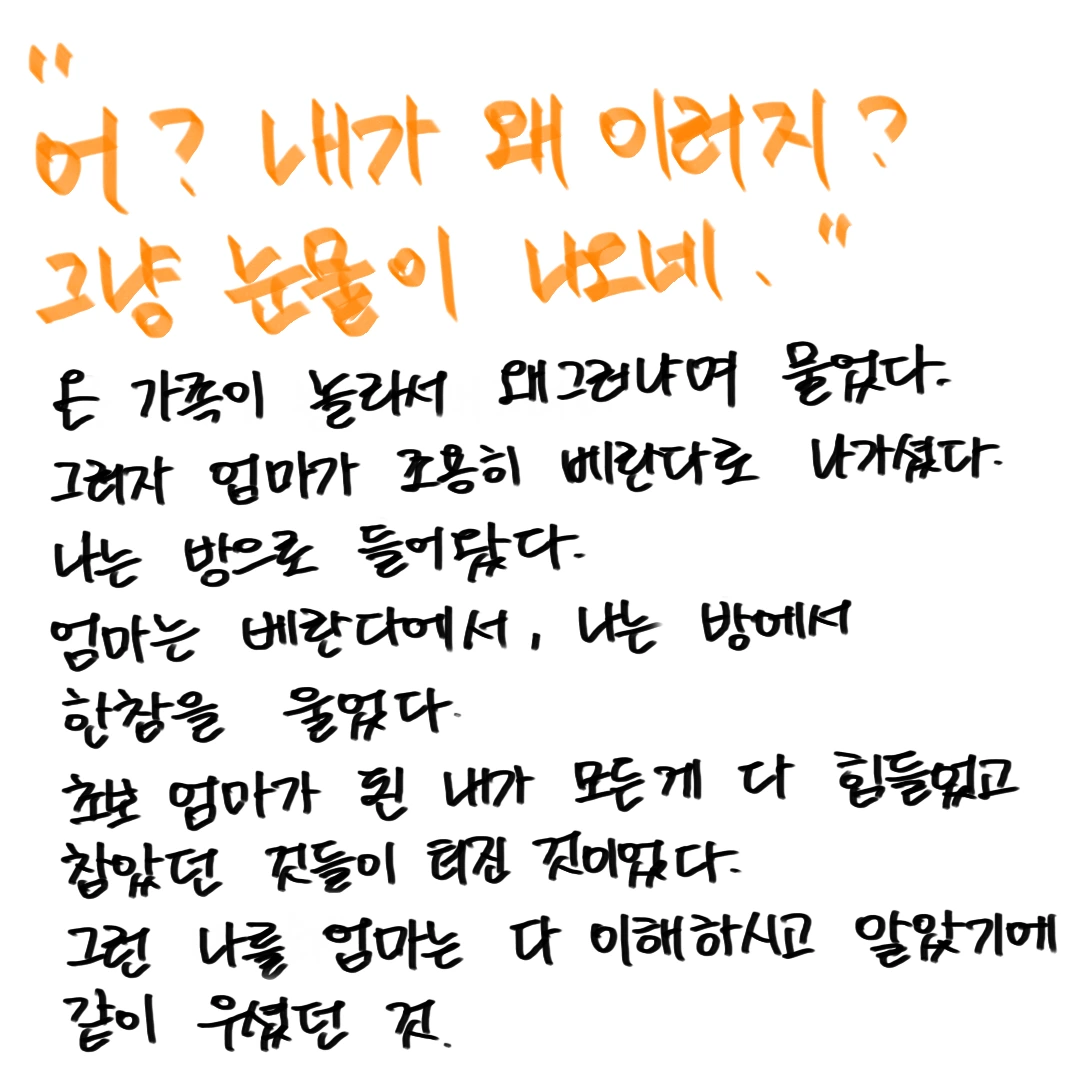 "
어? 내가 왜 이러지?
그냥 눈물이 나오네. "
온 가족이 놀라서 왜그러냐며 물었다.
그러자 엄마가 조용히 베란다로 나가셨다.
나는 방으로 들어갔다.
엄마는 베란다에서, 나는 방에서
한참을 울었다.
초보 엄마가 된 내가 모든게 다 힘들었고
참았던 것들이 터진 것이었다.
그런 나를 엄마는 다 이해하시고 알았기에
같이 우셨던 것.